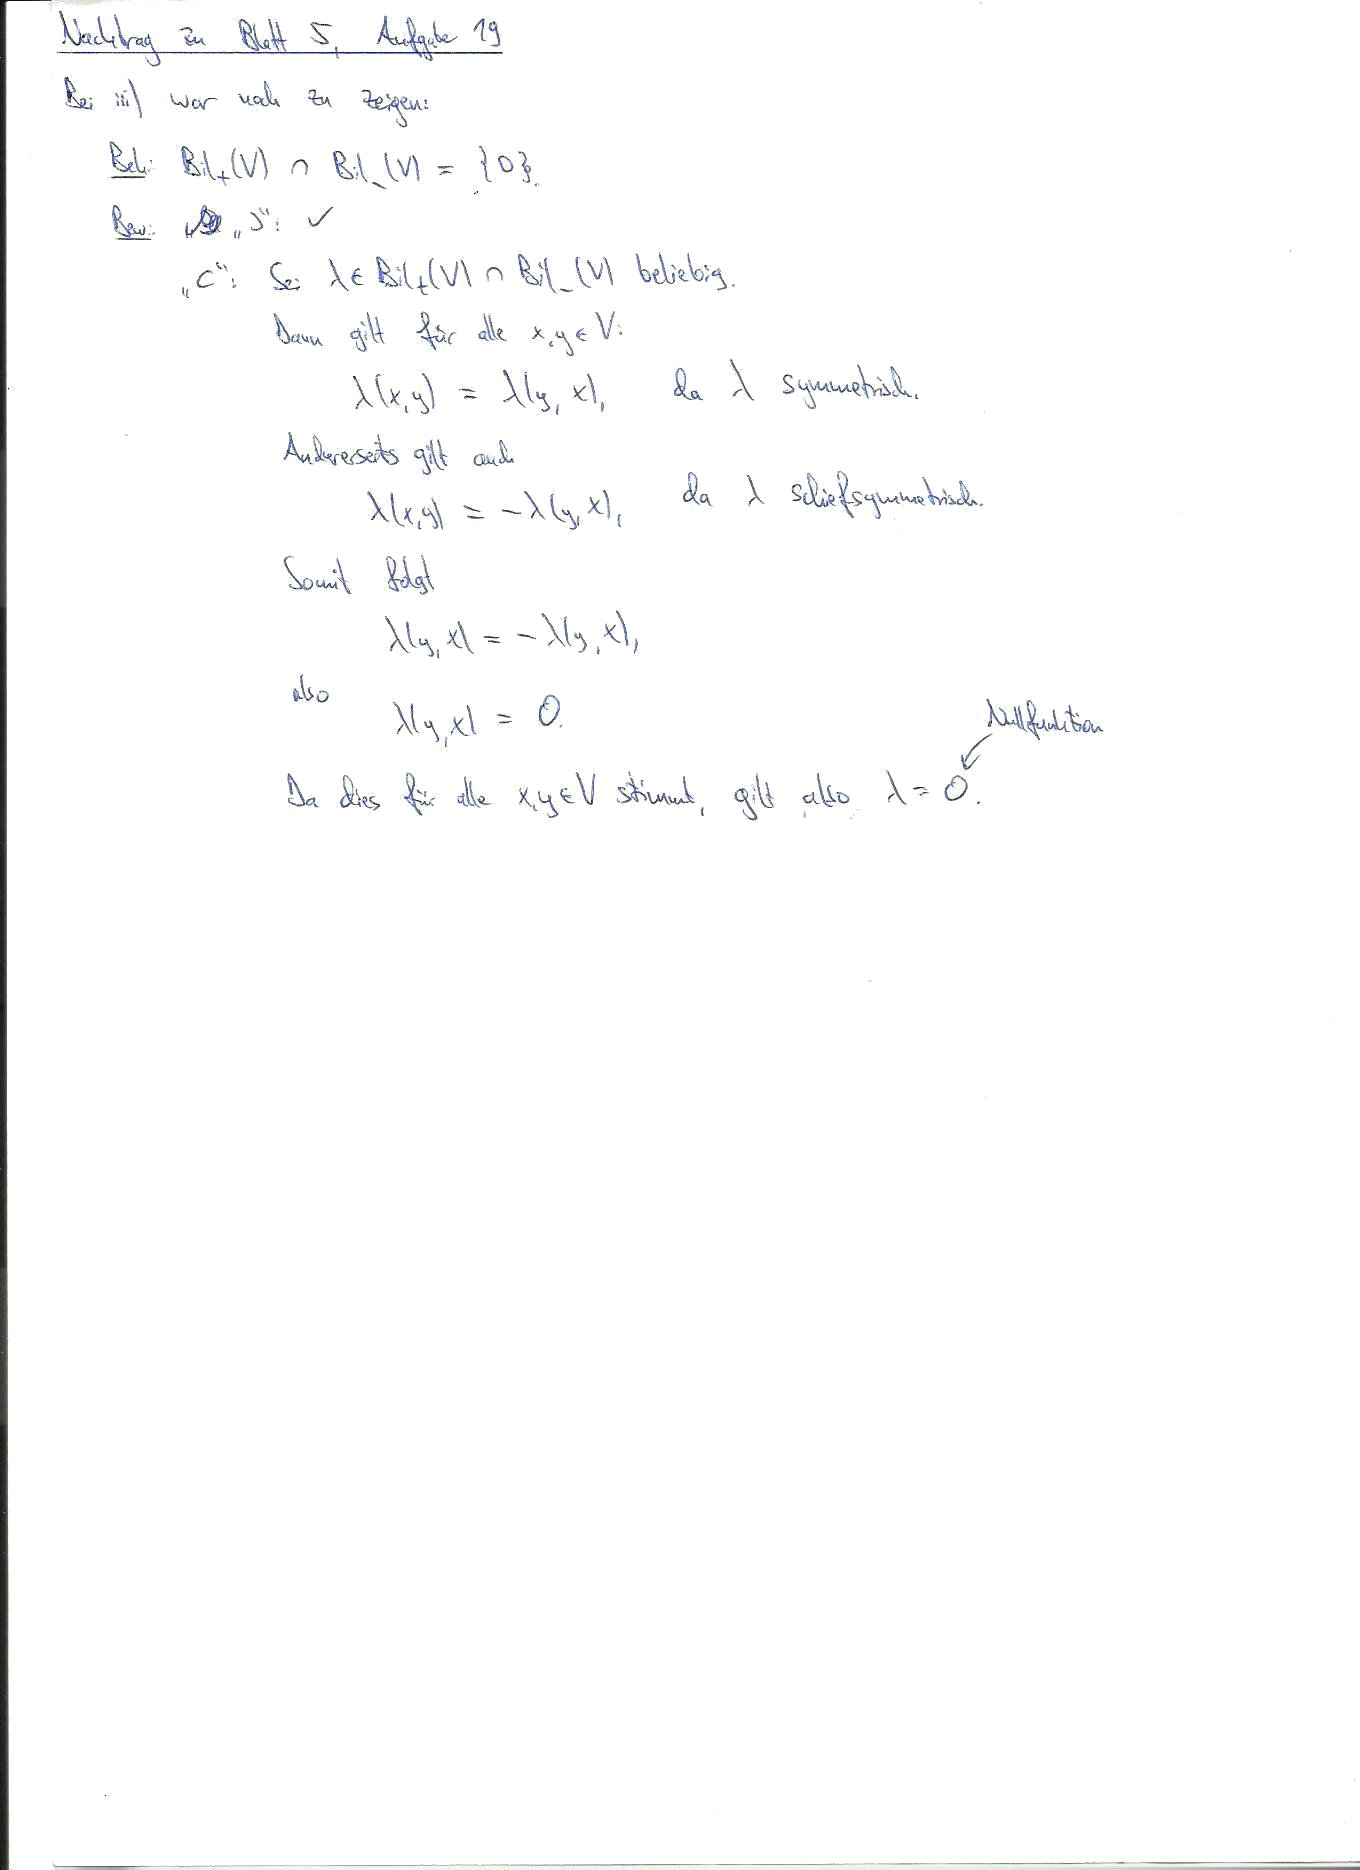 Nachtrag zu Blatt 5, Aufgabe 19
Bei iii) war noch zu zeigen:
Beh: Bil₊(V) ∩ Bil₋(V) = {0}.
Bew: „⊃“: ✓
„⊂“: Sei λ ∈ Bil₊(V) ∩ Bil₋(V) beliebig.
Dann gilt für alle x,y ∈ V:
λ(x,y) = λ(y,x), da λ symmetrisch.
Andererseits gilt auch
λ(x,y) = -λ(y,x), da λ schiefsymmetrisch.
Somit folgt
λ(y,x) = -λ(y,x),
also
λ(y,x) = 0.
Nullfunktion
Da dies für alle x,y ∈ V stimmt, gilt also λ = 0.